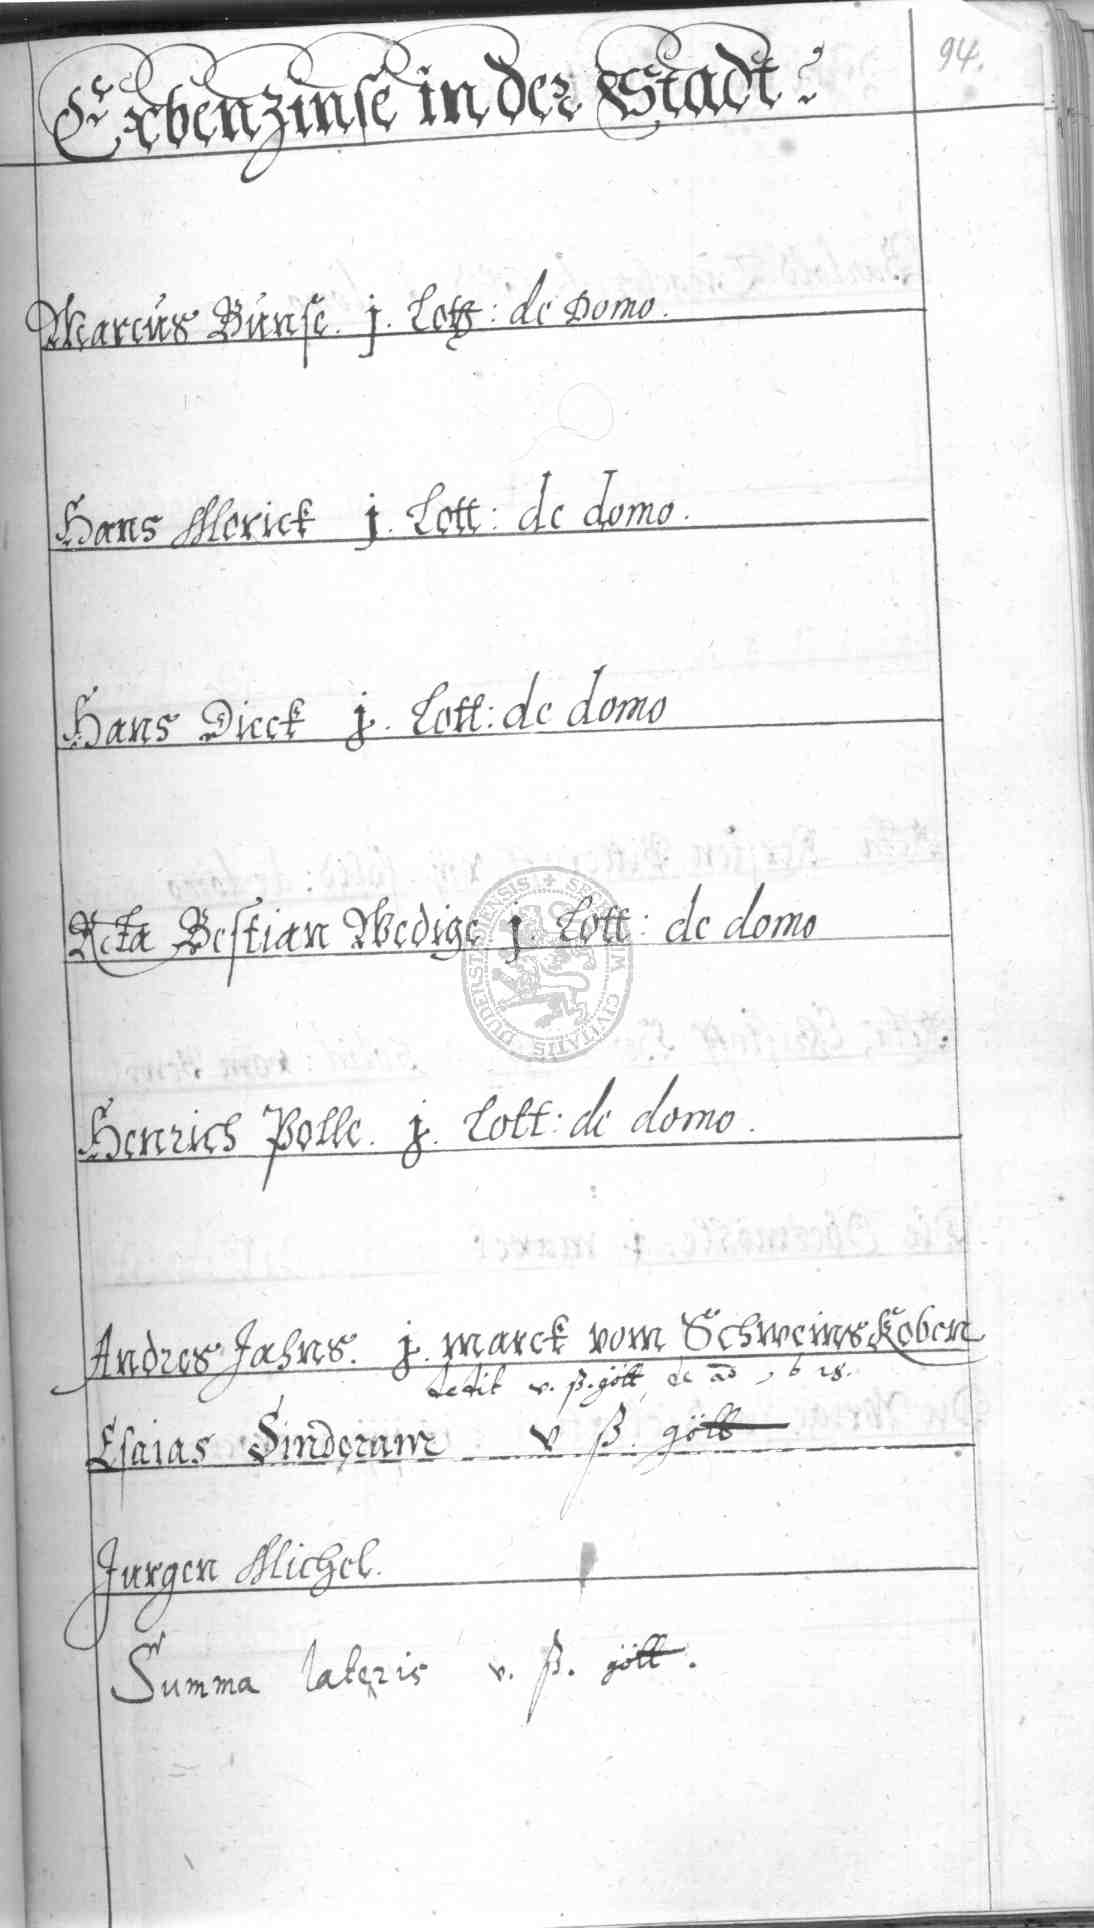 94.
Erbenzinse in der Stadt
Marcus Bunse. j. Lott: de Domo.
Hans Merick j. Lott: de domo.
Hans Dieck j. Lott: de domo
Rcta Bestian Wedige j. Lott: de domo
SIGILLUM CIVITATIS DUDERSTADENSIS
Henrich Polle. j. Lott: de domo.
Andres Jahns. j. marck vom Schweinskoben
dedit v. ß. gött de ao
Esaias Sinderam v ß. gött
Jurgen Michel.
Summa lateris v. ß. gött.